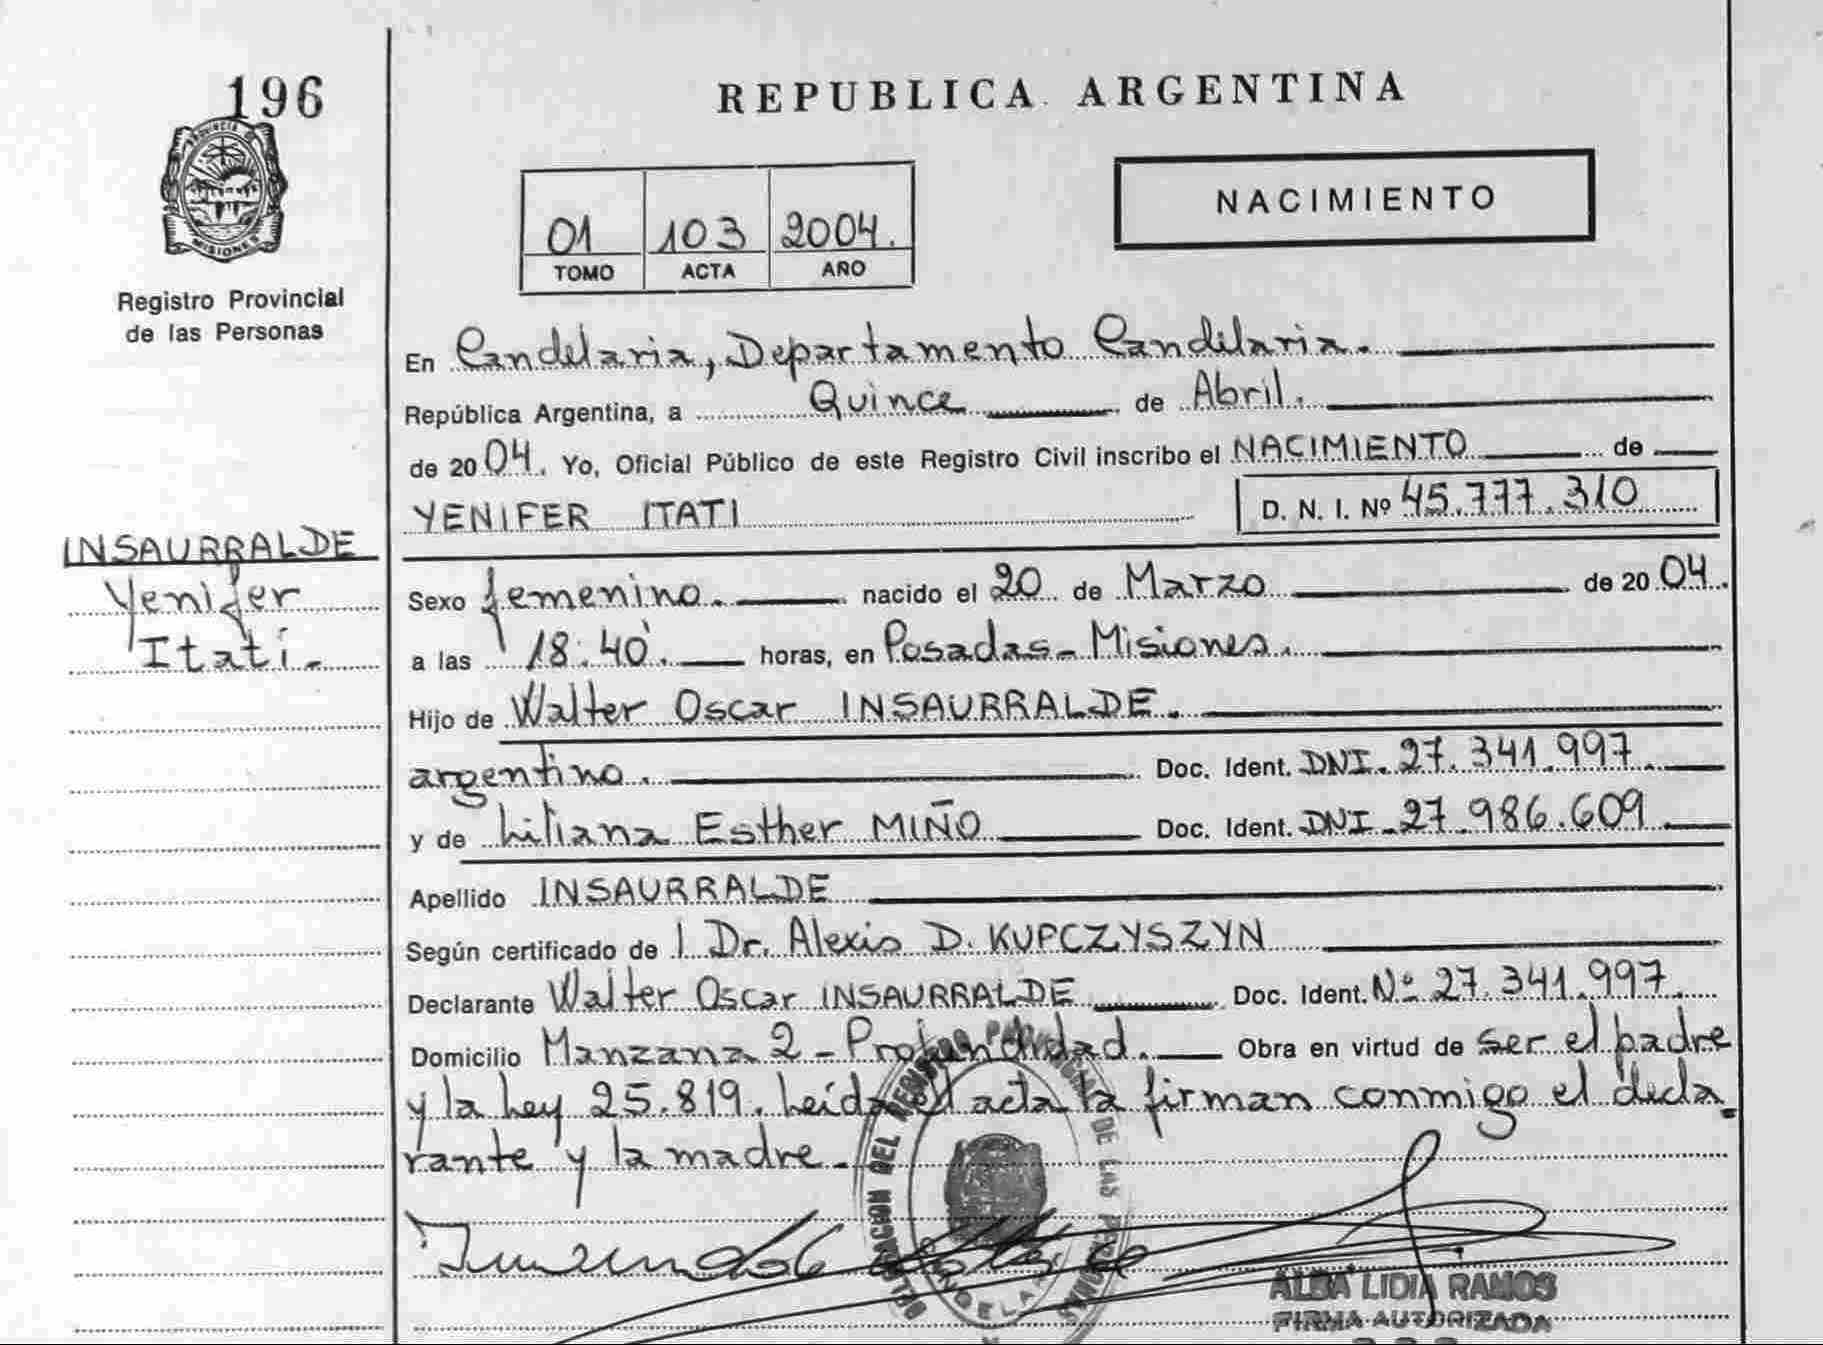 196
PROVINCIA DE
MISIONES
Registro Provincial
de las Personas
INSAURRALDE
Yenifer
Itatí.-
REPUBLICA ARGENTINA
01 103 2004.
TOMO ACTA AÑO
NACIMIENTO
En Candelaria, Departamento Candelaria.
República Argentina, a Quince de Abril.
de 2004. Yo, Oficial Público de este Registro Civil inscribo el NACIMIENTO de
YENIFER ITATI D. N. I. Nº 45.777.310
Sexo femenino. nacido el 20 de Marzo de 2004.
a las 18:40. horas, en Posadas - Misiones.
Hijo de Walter Oscar INSAURRALDE.
argentino. Doc. Ident. DNI. 27.341.997
y de Liliana Esther MIÑO Doc. Ident. DNI. 27.986.609
Apellido INSAURRALDE
Según certificado de l Dr. Alexis D. KUPCZYSZYN
Declarante Walter Oscar INSAURRALDE Doc. Ident. Nº 27.341.997.
Domicilio Manzana 2 - Profundidad. Obra en virtud de ser el padre
y la Ley 25.819. Leída el acta la firman conmigo el decla
rante y la madre.-
DEL REGISTRO DE LAS PERSONAS
ALBA LIDIA RAMOS
FIRMA AUTORIZADA